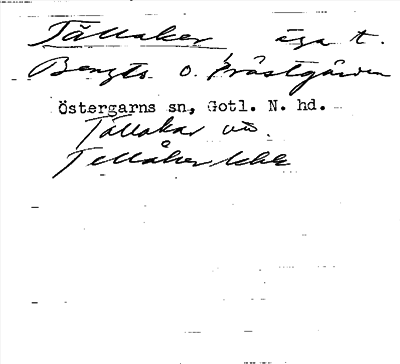 Tällaker, äga t.
Bengts o. Prästgården
Östergarns sn, Gotl. N. hd.
Tällakar
Tellåker